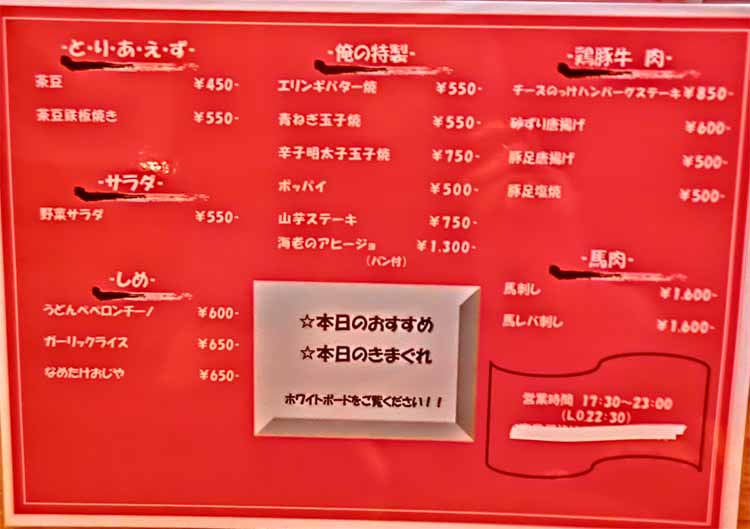 -と・り・あ・え・ず-
茶豆 ¥450-
茶豆鉄板焼き ¥550-
-サラダ-
野菜サラダ ¥550-
-しめ-
うどんペペロンチーノ ¥600-
ガーリックライス ¥650-
なめたけおじや ¥650-
-俺の特製-
エリンギバター焼 ¥550-
青ねぎ玉子焼 ¥550-
辛子明太子玉子焼 ¥750-
ポッパイ ¥500-
山芋ステーキ ¥750-
海老のアヒージョ ¥1.300-
(パン付)
☆本日のおすすめ
☆本日のきまぐれ
ホワイトボードをご覧ください!!
-鶏豚牛 肉-
チーズのっけハンバーグステーキ ¥850-
砂ずり唐揚げ ¥600-
豚足唐揚げ ¥500-
豚足塩焼 ¥500-
-馬肉-
馬刺し ¥1.600-
馬レバ刺し ¥1.600-
営業時間 17:30~23:00
(LO.22:30)